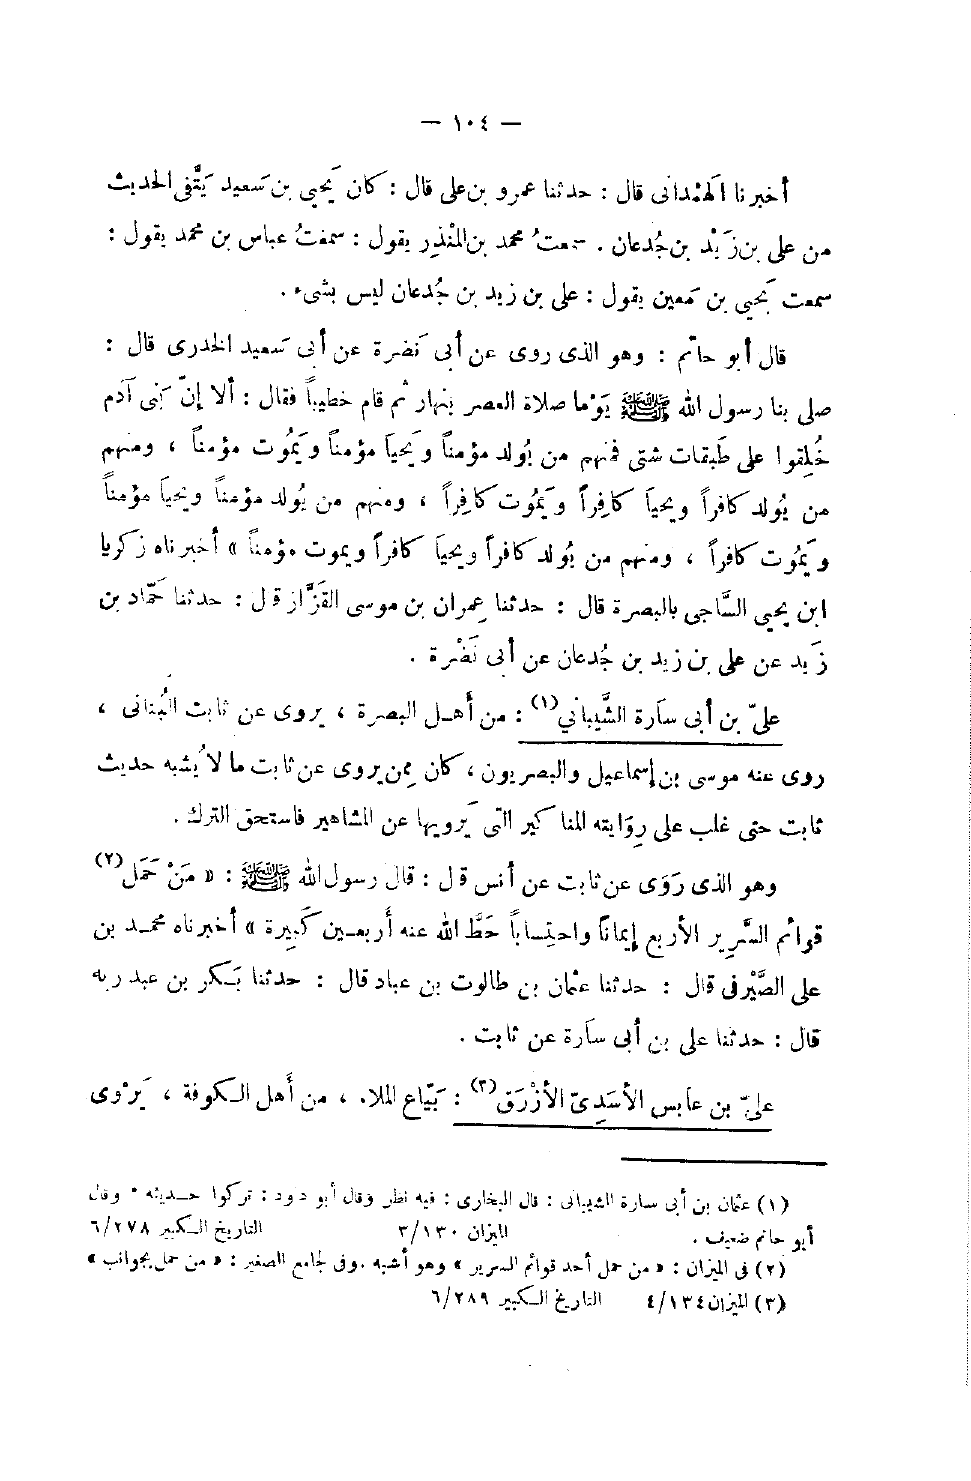 — ١٠٤ —
أخبرنا الهمدانى قال : حدثنا عمرو بن على قال : كان يَحيى بن سَعيد يَتَّقى الحديث
من على بن زَيْد بن جُدعان . سمعتُ محمد بن المنْذِر يقول : سمعتُ عباس بن محمد يقول :
سمعت يَحيى بن مَعين يقول : على بن زيد بن جُدعان ليس بشىء .
قال أبو حاتم : وهو الذى روى عن أبى نَضرة عن أبى سَعيد الخدرى قال :
صلى بنا رسول الله ﷺ يَوْما صلاة العصر بنهار ثم قام خطيباً فقال : ألا إنّ بَنى آدم
خُلِقوا على طَبقات شتى فمنهم من يُولد مؤمناً ويَحيَا مؤمناً ويَمُوت مؤمناً ، ومنهم
من يُولد كافراً ويحيَا كافِراً ويَمُوت كافِراً ، ومنهم من يُولد مؤمناً ويحيَا مؤمناً
ويَمُوت كافراً ، ومنهم من يُولد كافراً ويحيَا كافراً ويموت مؤمناً » أخبرناه زكريا
ابن يحيى السَّاجى بالبصرة قال : حدثنا عِمران بن موسى القزَّاز قال : حدثنا حَمّاد بن
زَيد عن على بن زيد بن جُدعان عن أبى نَضْرة .
علىّ بن أبى سَارة الشَّيبانيّ(١) : من أهل البصرة ، يروى عن ثابت البُنانى ،
روى عنه موسى بن إسماعيل والبصريون ، كان مِمن يروى عن ثابت ما لا يُشبه حديث
ثابت حتى غلب على رِوَايته المناكير التى يَرويها عن المشاهير فاستحق الترك .
وهو الذى رَوَى عن ثابت عن أنس قال : قال رسول الله ﷺ : « مَنْ حَمَل(٢)
قوائم السَّرِير الأربع إيمَاناً واحتِساباً حَطَّ الله عنه أربعين كَبِيرة » أخبرناه محمد بن
على الصَّيْرفى قال : حدثنا عثمان بن طالوت بن عباد قال : حدثنا بَكر بن عبد ربه
قال : حدثنا على بن أبى سَارة عن ثابت .
علىّ بن عابس الأسَدِىّ الأزْرَق(٣) : بَيّاع الملاء ، من أَهل الكوفة ، يَرْوى
(١) عثمان بن أبى سارة الشيبانى : قال البخارى : فيه نظر وقال أبو داود : تركوا حديثه . وقال
أبو حاتم ضعيف . الميزان ٣/١٣٠ التاريخ الكبير ٦/٢٧٨
(٢) فى الميزان : « من حمل أحد قوائم السرير » وهو أشبه . وفى لجامع الصغير : « من حمل بجوانب »
(٣) الميزان ٤/١٣٤ التاريخ الكبير ٦/٢٨٩